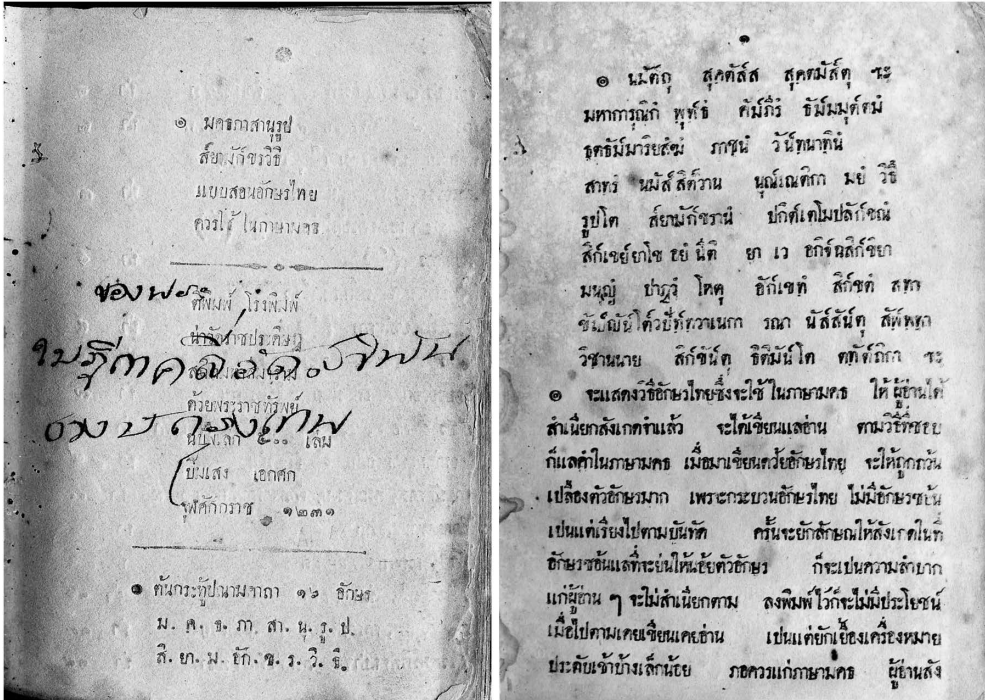 ๏ มคธภาสานุรูป
ส์ยามัก์ขรวิธี
แบบสอนอักษรไทย
ควรใช้ ในภาษามคธ
ของพระ
ตีพิมพ์ โรงพิมพ์
น่าวัดราชประดิษฐ
ด้วยพระราชทรัพย์
๕๐๐ เล่ม
ปีมเสง เอกศก
จุฬศักกราช ๑๒๓๑
๏ ต้นกระทู้ปนามคาถา ๑๖ อักษร
ม. ค. ธ. ภา. สา. นุ. รู. ป.
สิ. ยา. ม. อัก. ข. ร. วิ. ธิ.
๑
๏ นมัต์ถุ สุคตัส์ส สุคตมัส์ตุ จะ
มหาการุณิกํ พุท์ธํ คัม์ภีรํ ธัม์มมุต์ตมํ
ธตธัม์มาริยสํฆํ ภาชนํ วัน์ทนาทินํ
สาทรํ นมัส์สิต์วาน มยํ วิธึ
รูปโต ส์ยามัก์ขรานํ
สิก์เขย์ยาโข อยํ นีติ ยา เว
มนุญํ ปาฏวํ โหตุ สิก์ขตํ สทา
วิชานนาย สิก์ขัน์ตุ ธิติมัน์โต จะ
๏ จะแสดงวิธีอักษรไทยซึ่งจะใช้ ในภาษามคธ ให้ ผู้อ่านได้
สำเนียกสังเกตจำแล้ว จะได้เขียนแลอ่าน ตามวิธีที่ชอบ
ก็แลคำในภาษามคธ เมื่อมาเขียนด้วยอักษรไทย จะให้ถูกถ้วน
เปลืองตัวอักษรมาก เพราะกระบวนอักษรไทย ไม่มีอักษรซ้อน
เปนแต่เรียงไปตามบันทัด ครั้นจะยักลักษณให้สังเกตในที่
อักษรซ้อนแลที่จะย่นให้น้อยตัวอักษร ก็จะเปนความลำบาก
แก่ผู้อ่าน ๆ จะไม่สำเนียกตาม ลงพิมพ์ไว้ก็จะไม่มีประโยชน์
เมื่อไปตามเคยเขียนเคยอ่าน เปนแต่ยักเยื้องเครื่องหมาย
ประดับเข้าบ้างเล็กน้อย ภอควรแก่ภาษามคธ ผู้อ่านสัง